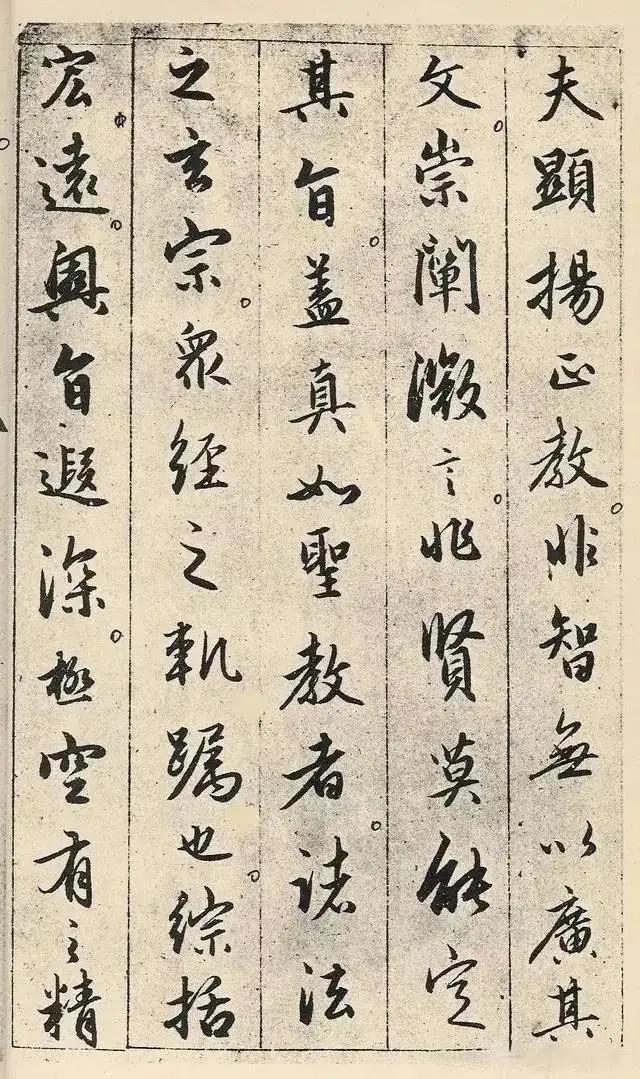 夫顯揚正教。非智無以廣其
文。崇闡微言。非賢莫能定
其旨。蓋真如聖教者。諸法
之玄宗。眾經之軌躅也。綜括
宏遠。奧旨遐深。極空有之精